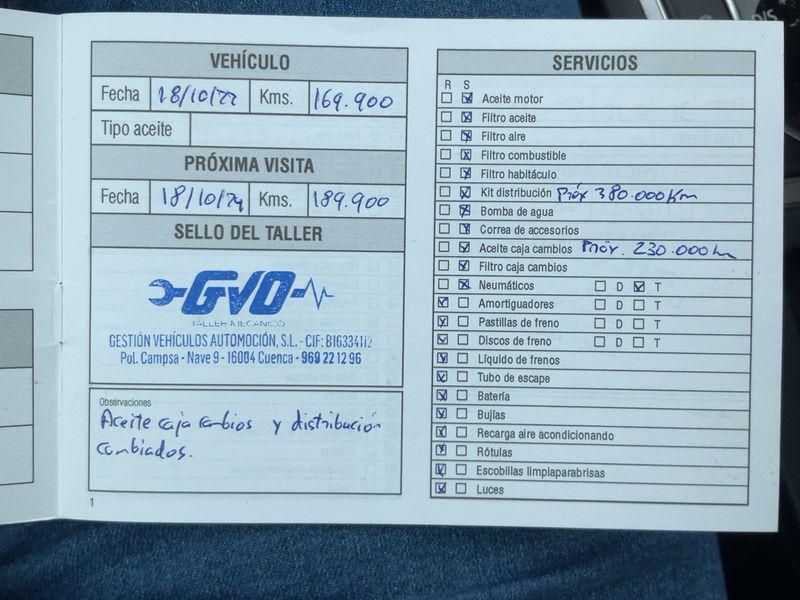 VEHÍCULO
Fecha 18/10/22 Kms. 169.900
Tipo aceite
PRÓXIMA VISITA
Fecha 18/10/24 Kms. 189.900
SELLO DEL TALLER
GVO
TALLER MECÁNICO
GESTIÓN VEHÍCULOS AUTOMOCIÓN, S.L. - CIF: B16334112
Pol. Campsa - Nave 9 - 16004 Cuenca - 969 22 12 96
Observaciones
Aceite caja cambios y distribución
cambiados.
1
SERVICIOS
R S
Aceite motor
Filtro aceite
Filtro aire
Filtro combustible
Filtro habitáculo
Kit distribución Próx 380.000 Km
Bomba de agua
Correa de accesorios
Aceite caja cambios Próx. 230.000
Filtro caja cambios
Neumáticos D T
Amortiguadores D T
Pastillas de freno D T
Discos de freno D T
Líquido de frenos
Tubo de escape
Batería
Bujías
Recarga aire acondicionando
Rótulas
Escobillas limpiaparabrisas
Luces